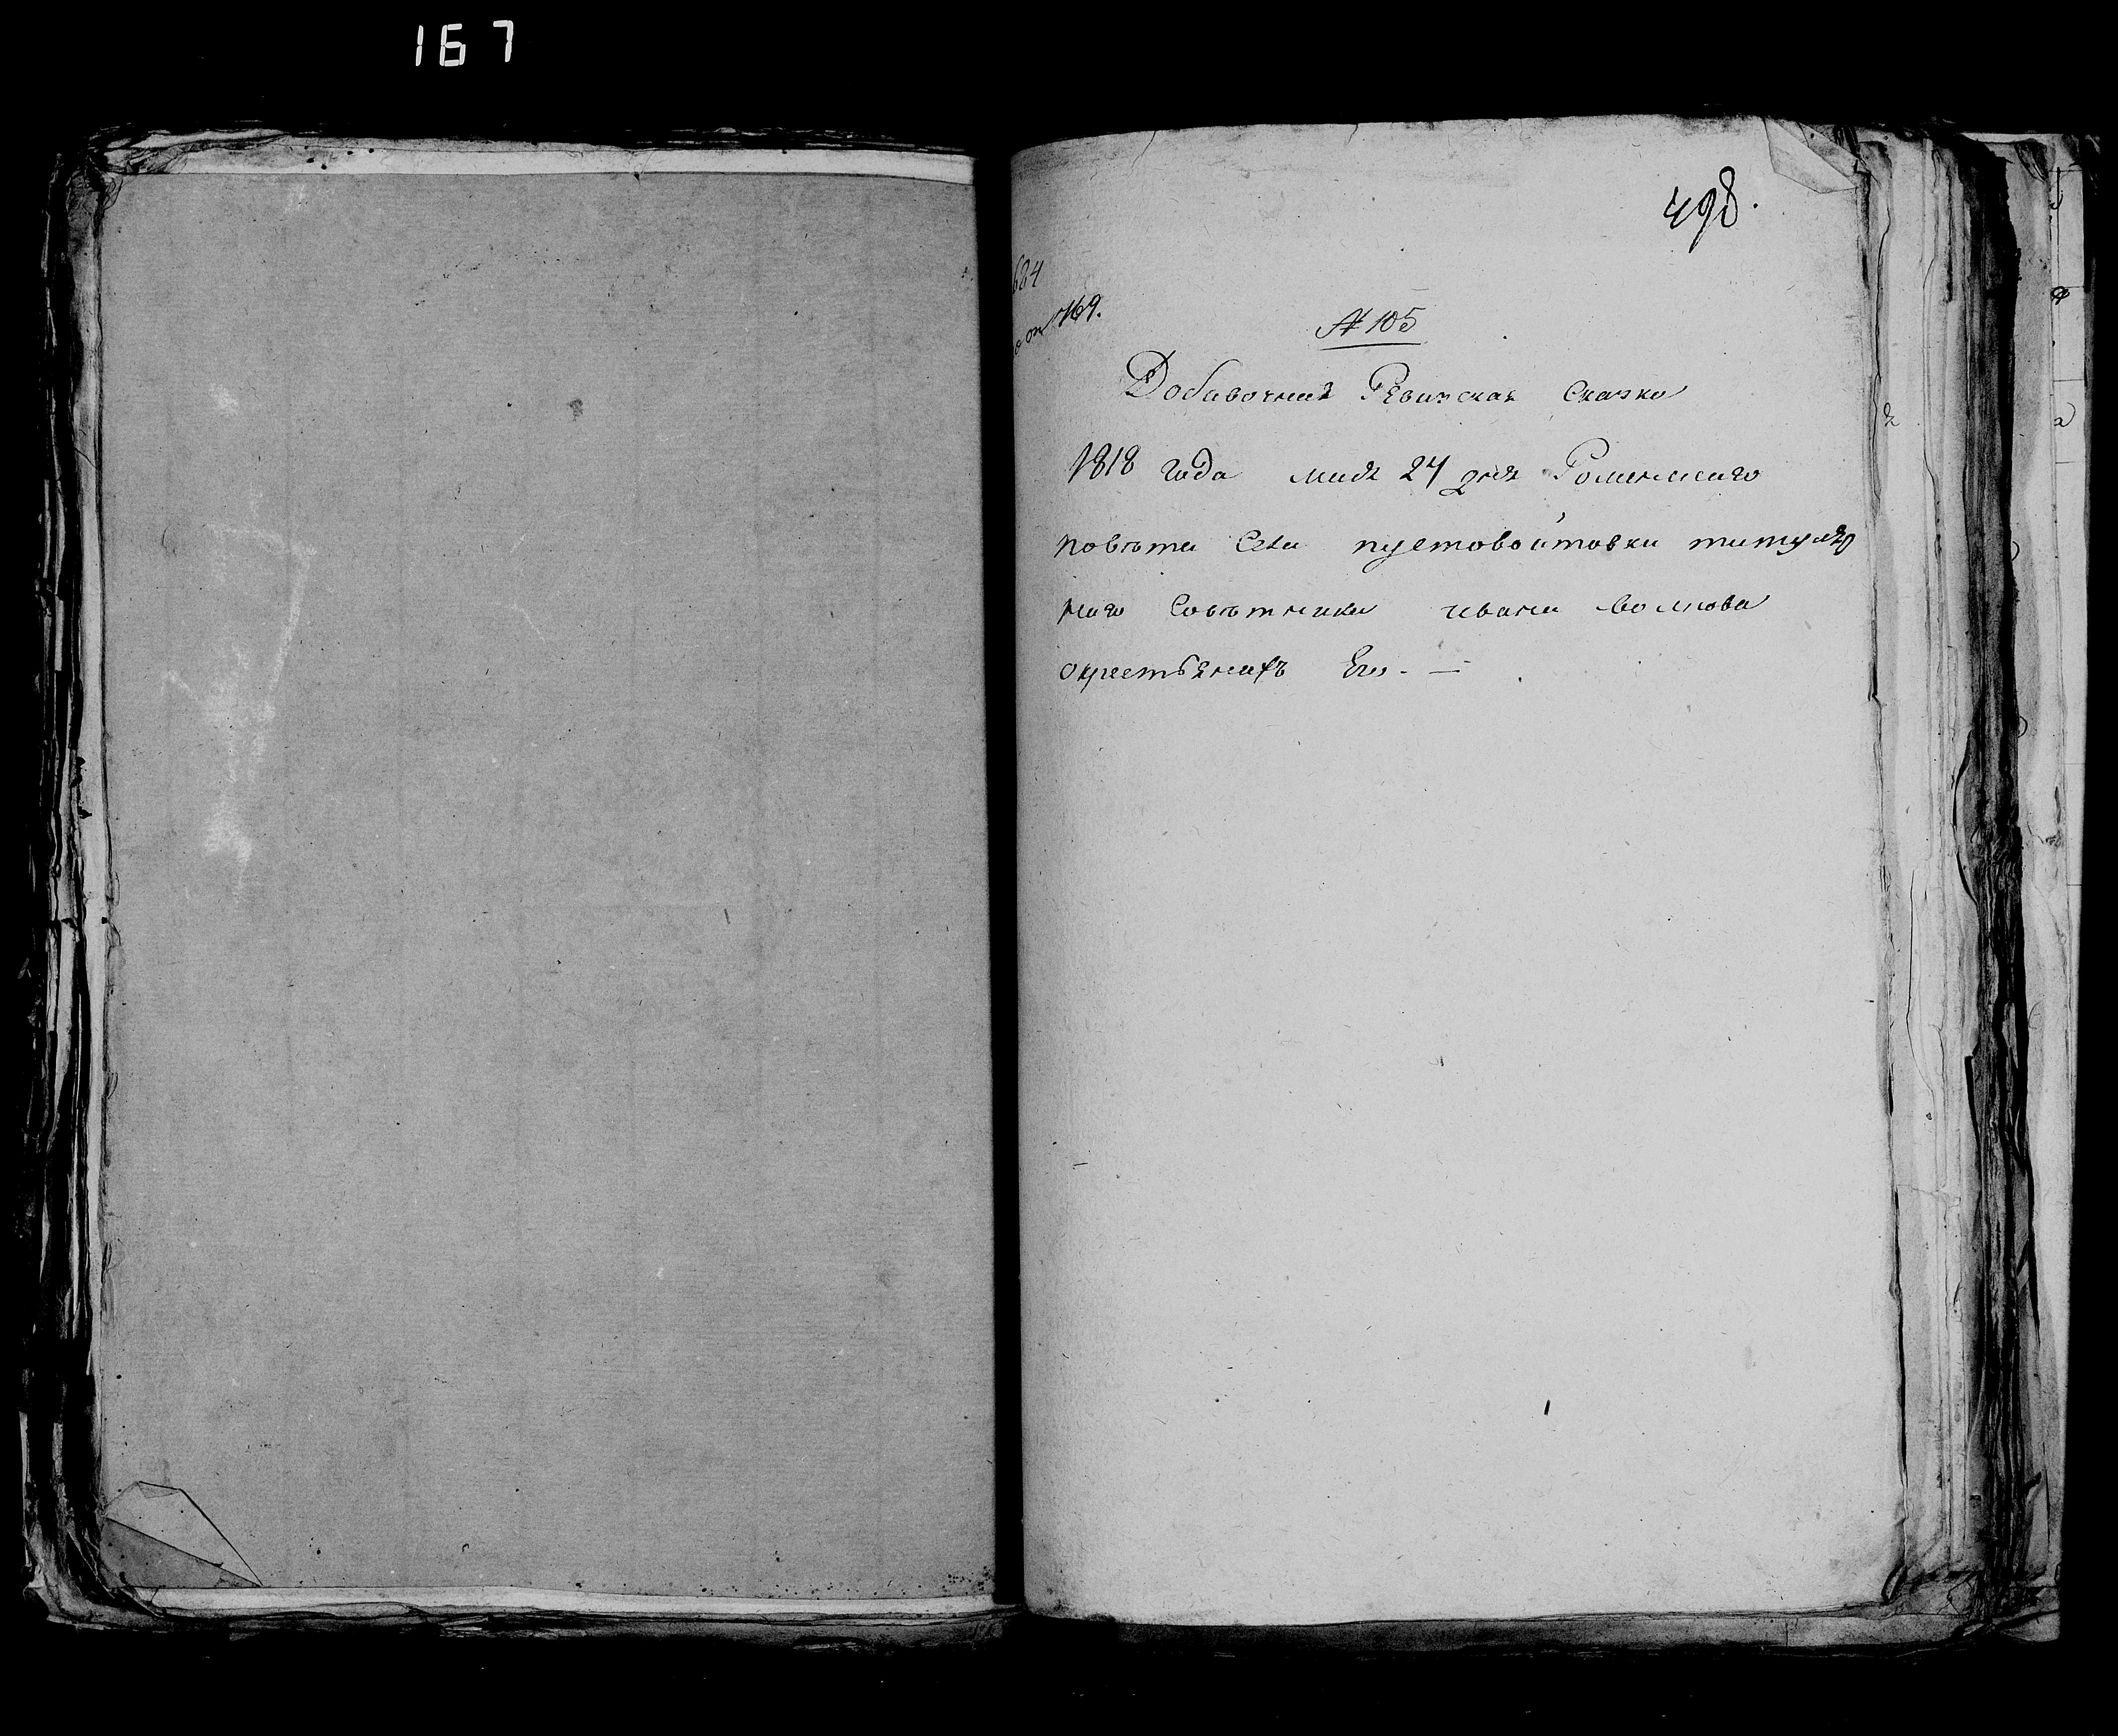 167
498.
684
о от 769.
№ 105
Добавочная Ревизская Сказка
1818 года мая 24 дня Роменскаго
повѣта Села пустовойтовки титуляр
наго Совѣтника ивана волкова
окрестьянахъ Его. —